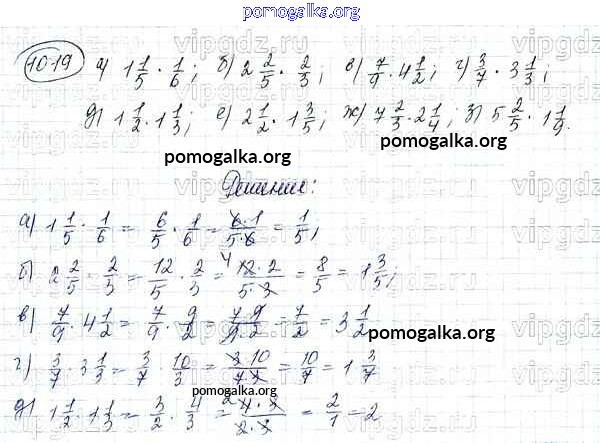 pomogalka.org
1019 а) 1 1/5 · 1/6; б) 2 2/5 · 2/3; в) 7/9 · 4 1/2; г) 3/7 · 3 1/3;
д) 1 1/2 · 1 1/3; е) 2 1/2 · 1 3/5; ж) 7 2/3 · 2 1/4; з) 5 2/5 · 1 1/9.
pomogalka.org
Решение:
а) 1 1/5 · 1/6 = 6/5 · 1/6 = 6·1/5·6 = 1/5;
б) 2 2/5 · 2/3 = 12/5 · 2/3 = 4 12·2/5·3 = 8/5 = 1 3/5;
в) 7/9 · 4 1/2 = 7/9 · 9/2 = 7·9/9·2 = 7/2 = 3 1/2
pomogalka.org
г) 3/7 · 3 1/3 = 3/7 · 10/3 = 3·10/7·3 = 10/7 = 1 3/7
pomogalka.org
д) 1 1/2 · 1 1/3 = 3/2 · 4/3 = 2 4·3/2·3 = 2/1 = 2
vipgdz.ru